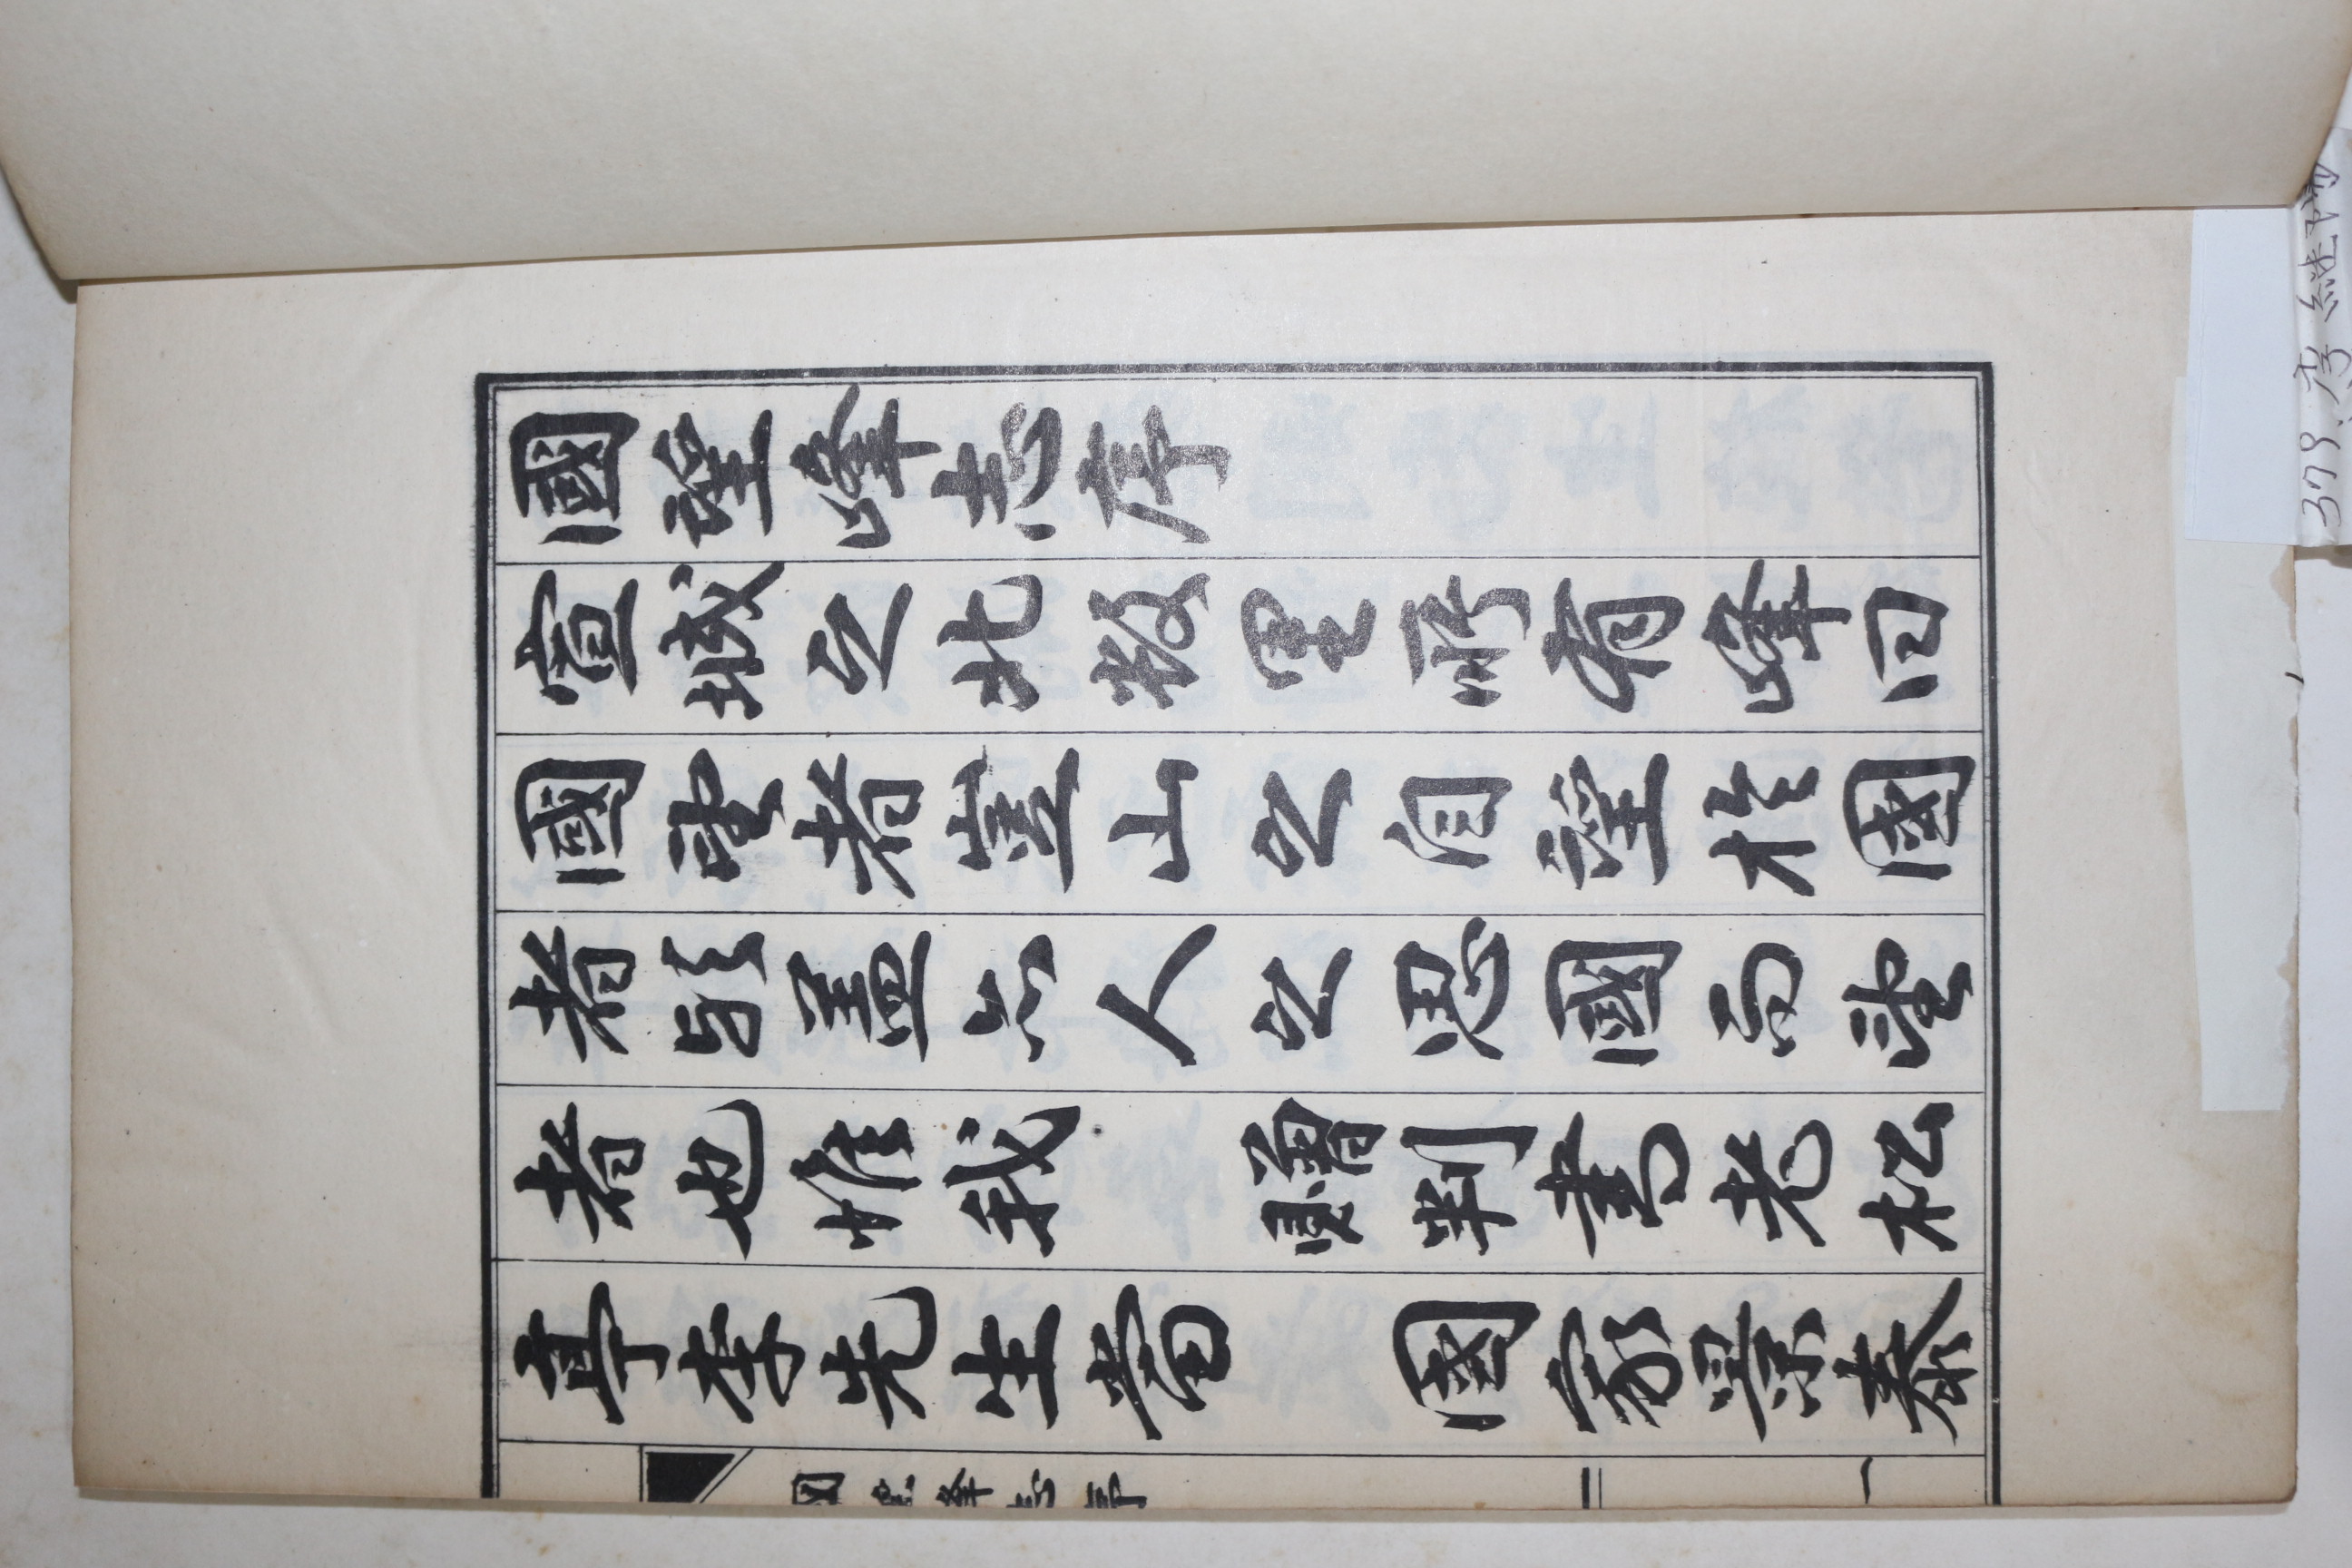 國望峰志序
宣城之北数里所有峰曰
國望者豈山之自望於國
者歟盖亦人之思國而望
者也惟我 贈判書老松
亭李先生當 國家景泰
國望峰志序
一
379. 李継陽